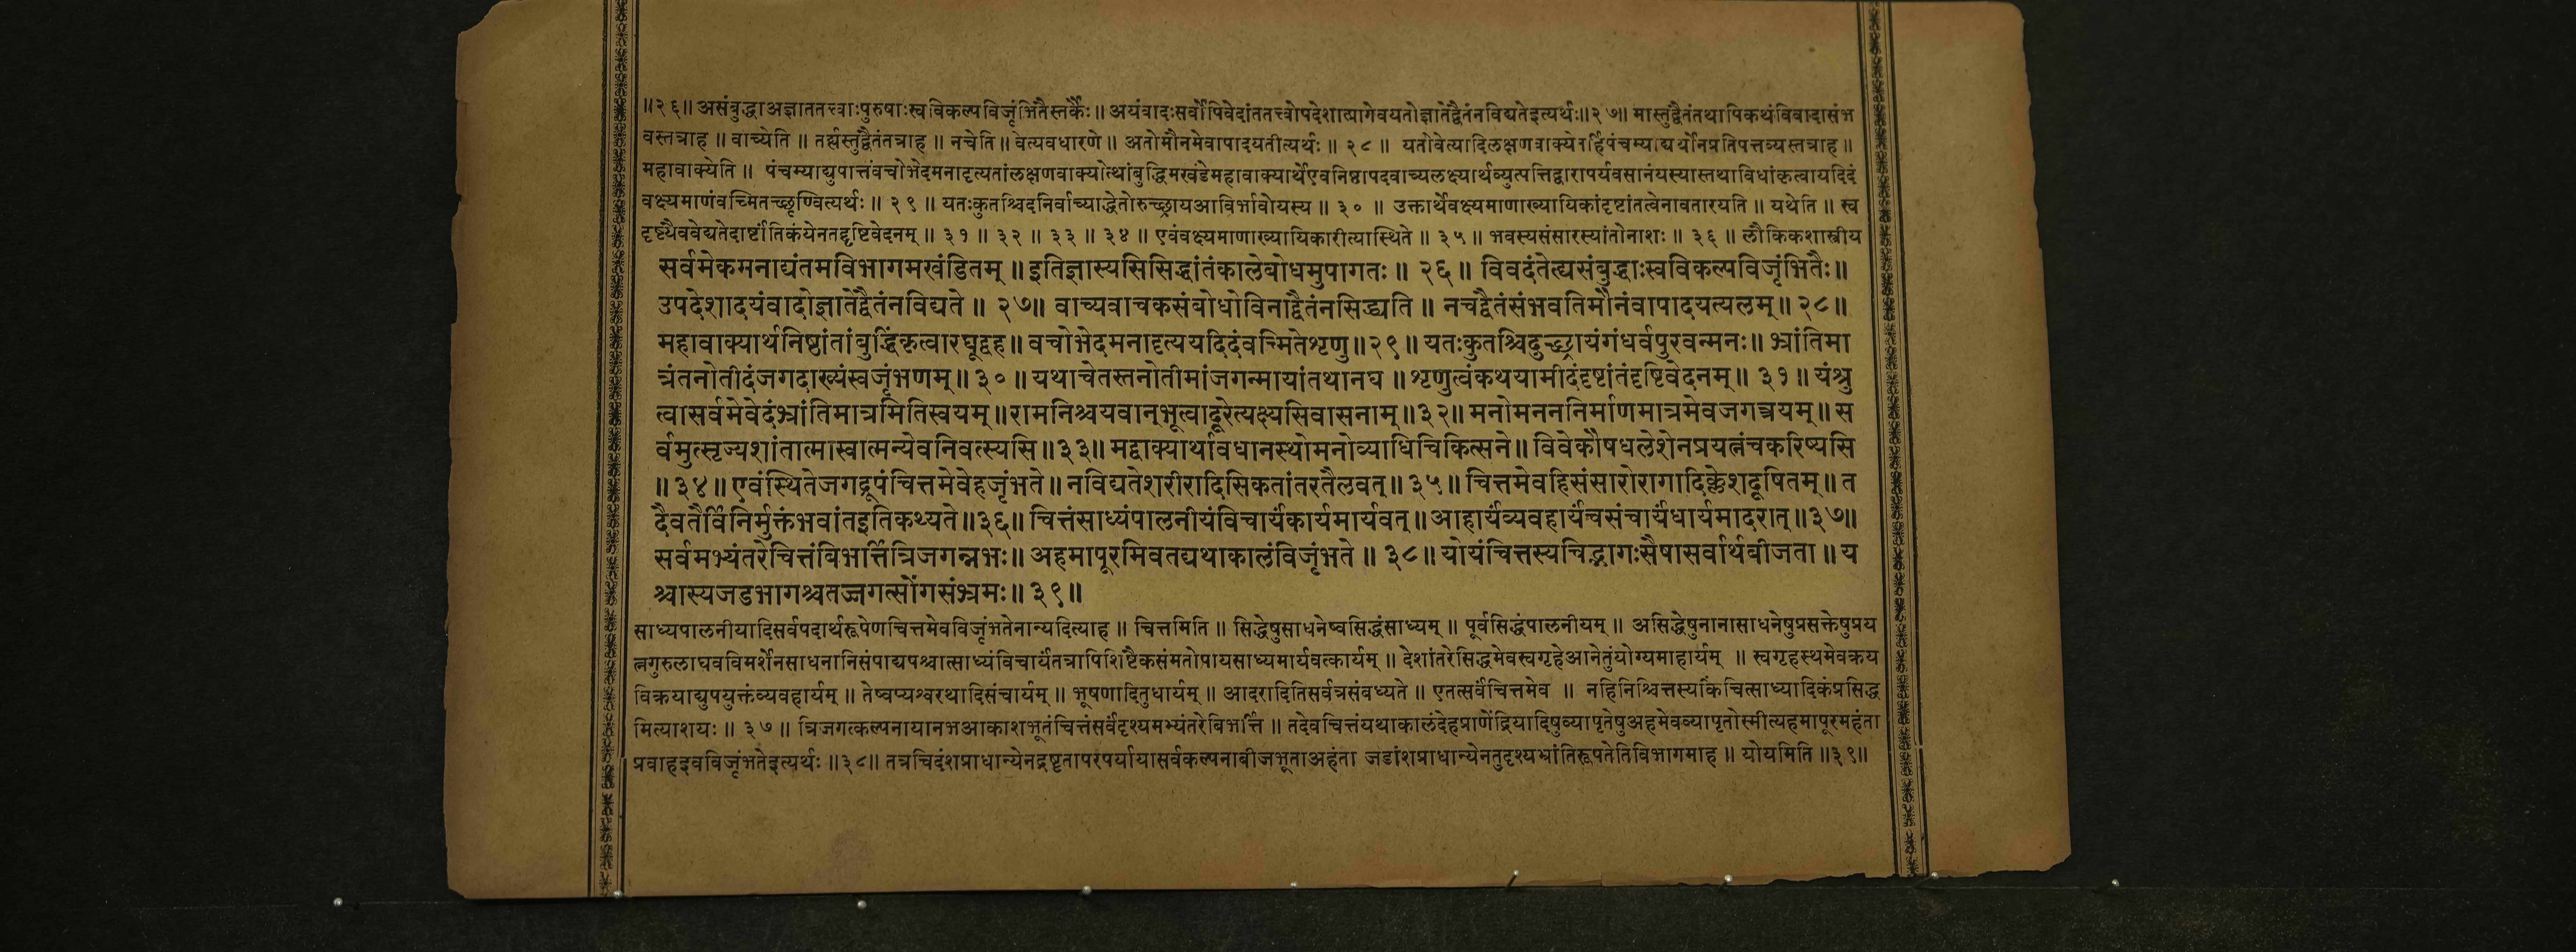 ॥२६॥ असंबुद्धाअज्ञाततत्त्वाःपुरुषाःस्वविकल्पविजृंभितैस्तर्कैः॥ अयंवादःसर्वोपिवेदांततत्त्वोपदेशात्प्रागेवयतोज्ञातेद्वैतंनविद्यतेइत्यर्थः॥२७॥ मास्तुद्वैतंतथापिकथंविवादासंभ
वस्तत्राह ॥ वाच्येति ॥ तर्ह्यस्तुद्वैतंतत्राह ॥ नचेति ॥ वेत्यवधारणे ॥ अतोमौनमेवापादयतीत्यर्थः ॥ २८ ॥ यतोवेत्यादिलक्षणवाक्येतर्हिपंचम्याद्यर्थोनप्रतिपत्तव्यस्तत्राह॥
महावाक्येति ॥ पंचम्याद्युपात्तंवचोभेदमनादृत्यतांलक्षणवाक्योत्थांबुद्धिमखंडेमहावाक्यार्थेएवनिष्ठापदवाच्यलक्ष्यार्थव्युत्पत्तिद्वारापर्यवसानंयस्यास्तथाविधांकृत्वायदिदं
वक्ष्यमाणंवच्मितच्छृण्वित्यर्थः ॥ २९ ॥ यतःकुतश्चिदनिर्वाच्याद्धेतोरुच्छ्रायआविर्भावोयस्य ॥ ३० ॥ उक्तार्थेवक्ष्यमाणाख्यायिकांदृष्टांतत्वेनावतारयति ॥ यथेति ॥ स्व
दृष्ट्यैववेद्यतेदार्ष्टांतिकंयेनतद्दृष्टिवेदनम् ॥ ३१ ॥ ३२ ॥ ३३ ॥ ३४ ॥ एवंवक्ष्यमाणाख्यायिकारीत्यास्थिते ॥ ३५ ॥ भवस्यसंसारस्यांतोनाशः ॥ ३६ ॥ लौकिकशास्त्रीय
सर्वमेकमनाद्यंतमविभागमखंडितम् ॥ इतिज्ञास्यसिसिद्धांतंकालेबोधमुपागतः ॥ २६ ॥ विवदंतेत्यसंबुद्धाःस्वविकल्पविजृंभितैः॥
उपदेशादयंवादोज्ञातेद्वैतंनविद्यते ॥ २७॥ वाच्यवाचकसंबोधोविनाद्वैतंनसिद्ध्यति ॥ नचद्वैतंसंभवतिमौनंवापादयत्यलम्॥ २८॥
महावाक्यार्थनिष्ठांतांबुद्धिंकृत्वारघूद्वह॥ वचोभेदमनादृत्ययदिदंवच्मितेशृणु॥२९॥ यतःकुतश्चिदुच्छ्रायंगंधर्वपुरवन्मनः॥ भ्रांतिमा
त्रंतनोतीदंजगदाख्यंस्वजृंभणम्॥ ३०॥ यथाचेतस्तनोतीमांजगन्मायांतथानघ ॥ शृणुत्वंकथयामीदंदृष्टांतंदृष्टिवेदनम्॥ ३१॥ यंश्रु
त्वासर्वमेवेदंभ्रांतिमात्रमितिस्वयम्॥रामनिश्चयवान्भूत्वादूरेत्यक्ष्यसिवासनाम्॥३२॥ मनोमनननिर्माणमात्रमेवजगत्त्रयम्॥ स
र्वमुत्सृज्यशांतात्मास्वात्मन्येवनिवत्स्यसि ॥३३॥ मद्वाक्यार्थावधानस्थोमनोव्याधिचिकित्सने॥ विवेकौषधलेशेनप्रयत्नंचकरिष्यसि
॥३४॥ एवंस्थितेजगद्रूपंचित्तमेवेहजृंभते॥ नविद्यतेशरीरादिसिकतांतरतैलवत्॥ ३५॥ चित्तमेवहिसंसारोरागादिक्लेशदूषितम्॥ त
दैवतैर्विनिर्मुक्तंभवांतइतिकथ्यते॥३६॥ चित्तंसाध्यंपालनीयंविचार्यंकार्यमार्यवत्॥आहार्यंव्यवहार्यंचसंचार्यंधार्यमादरात्॥३७॥
सर्वमभ्यंतरेचित्तंबिभर्त्तित्रिजगन्नभः॥ अहमापूरमिवतद्यथाकालंविजृंभते ॥ ३८॥ योयंचित्तस्यचिद्भागःसैषासर्वार्थबीजता ॥ य
श्चास्यजडभागश्चतज्जगत्सोंगसंभ्रमः॥ ३९॥
साध्यपालनीयादिसर्वपदार्थरूपेणचित्तमेवविजृंभतेनान्यदित्याह ॥ चित्तमिति ॥ सिद्धेषुसाधनेष्वसिद्धंसाध्यम् ॥ पूर्वसिद्धंपालनीयम् ॥ असिद्धेषुनानासाधनेषुप्रसक्तेषुप्रय
त्नगुरुलाघवविमर्शेनसाधनानिसंपाद्यपश्चात्साध्यंविचार्यंतत्रापिशिष्टैकसंमतोपायसाध्यमार्यवत्कार्यम् ॥ देशांतरेसिद्धमेवस्वगृहेआनेतुंयोग्यमाहार्यम् ॥ स्वगृहस्थमेवक्रय
विक्रयाद्युपयुक्तंव्यवहार्यम् ॥ तेष्वप्यश्वरथादिसंचार्यम् ॥ भूषणादितुधार्यम् ॥ आदरादितिसर्वत्रसंबध्यते ॥ एतत्सर्वंचित्तमेव ॥ नहिनिश्चित्तस्यकिंचित्साध्यादिकंप्रसिद्ध
मित्याशयः ॥ ३७ ॥ त्रिजगत्कल्पनायानभआकाशभूतंचित्तंसर्वंदृश्यमभ्यंतरेबिभर्त्ति ॥ तदेवचित्तंयथाकालंदेहप्राणेंद्रियादिषुव्यापृतेषुअहमेवव्यापृतोस्मीत्यहमापूरमहंता
प्रवाहइवविजृंभतेइत्यर्थः ॥३८॥ तत्रचिदंशप्राधान्येनद्रष्टृतापरपर्यायासर्वकल्पनाबीजभूताअहंता जडांशप्राधान्येनतुदृश्यभ्रांतिरूपतेतिविभागमाह ॥ योयमिति ॥३९॥